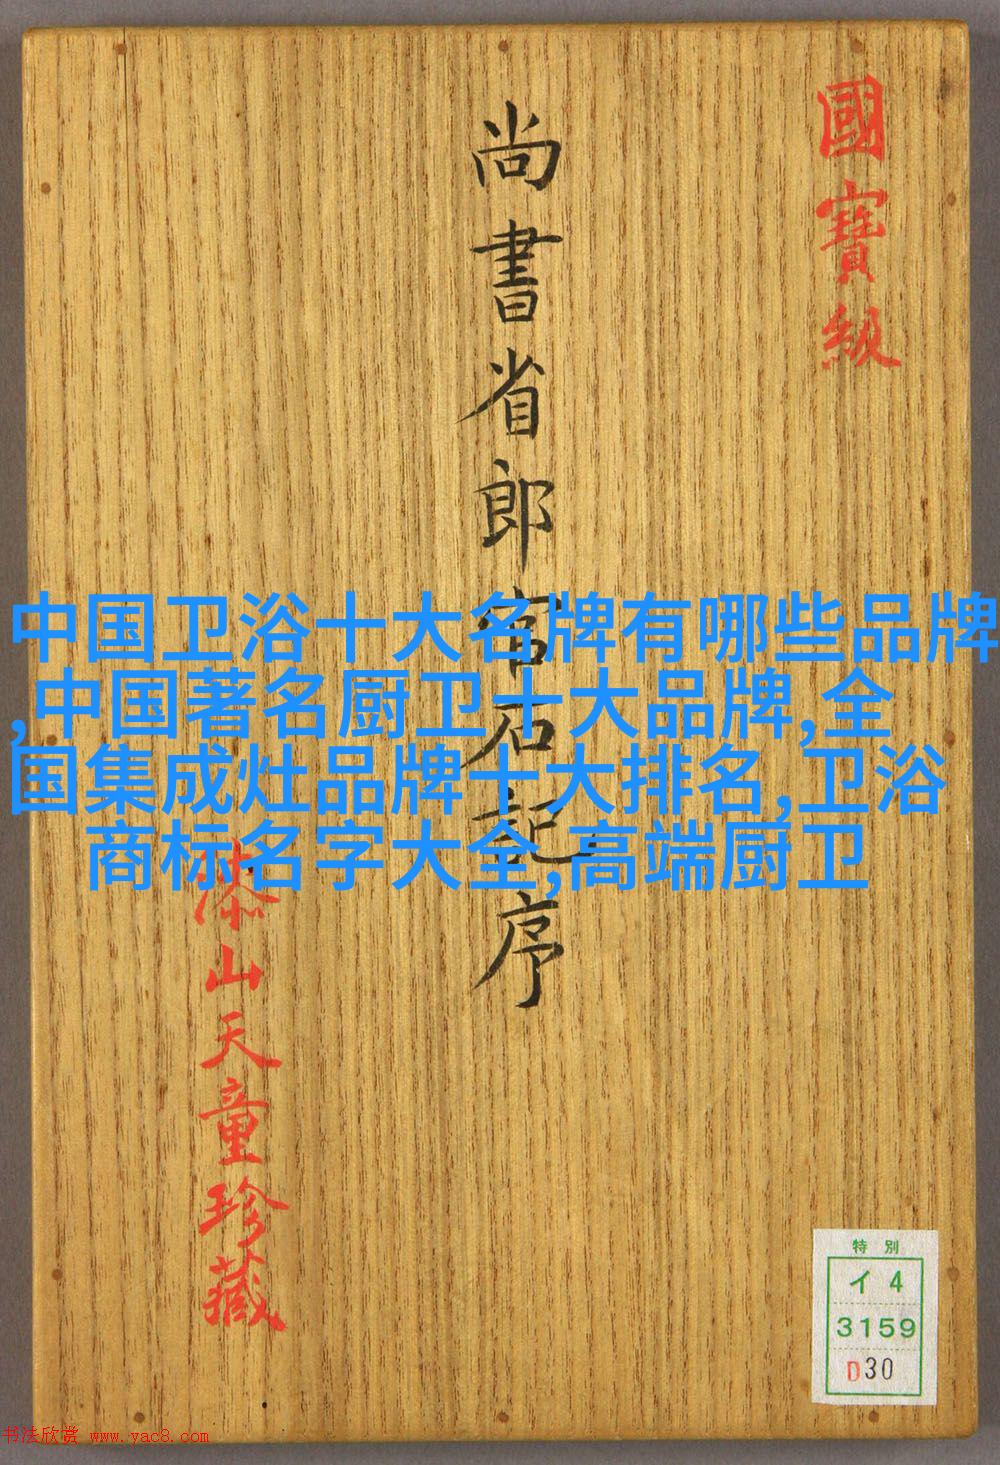 國寶級
尚書省郎官石記序
漆山天童珍藏
中国卫浴十大名牌有哪些品牌
,中国著名厨卫十大品牌,全
国集成灶品牌十大排名,卫浴
商标名字大全,高端厨卫
特別
イ4
3159
D30
书法欣赏 www.yac8.com